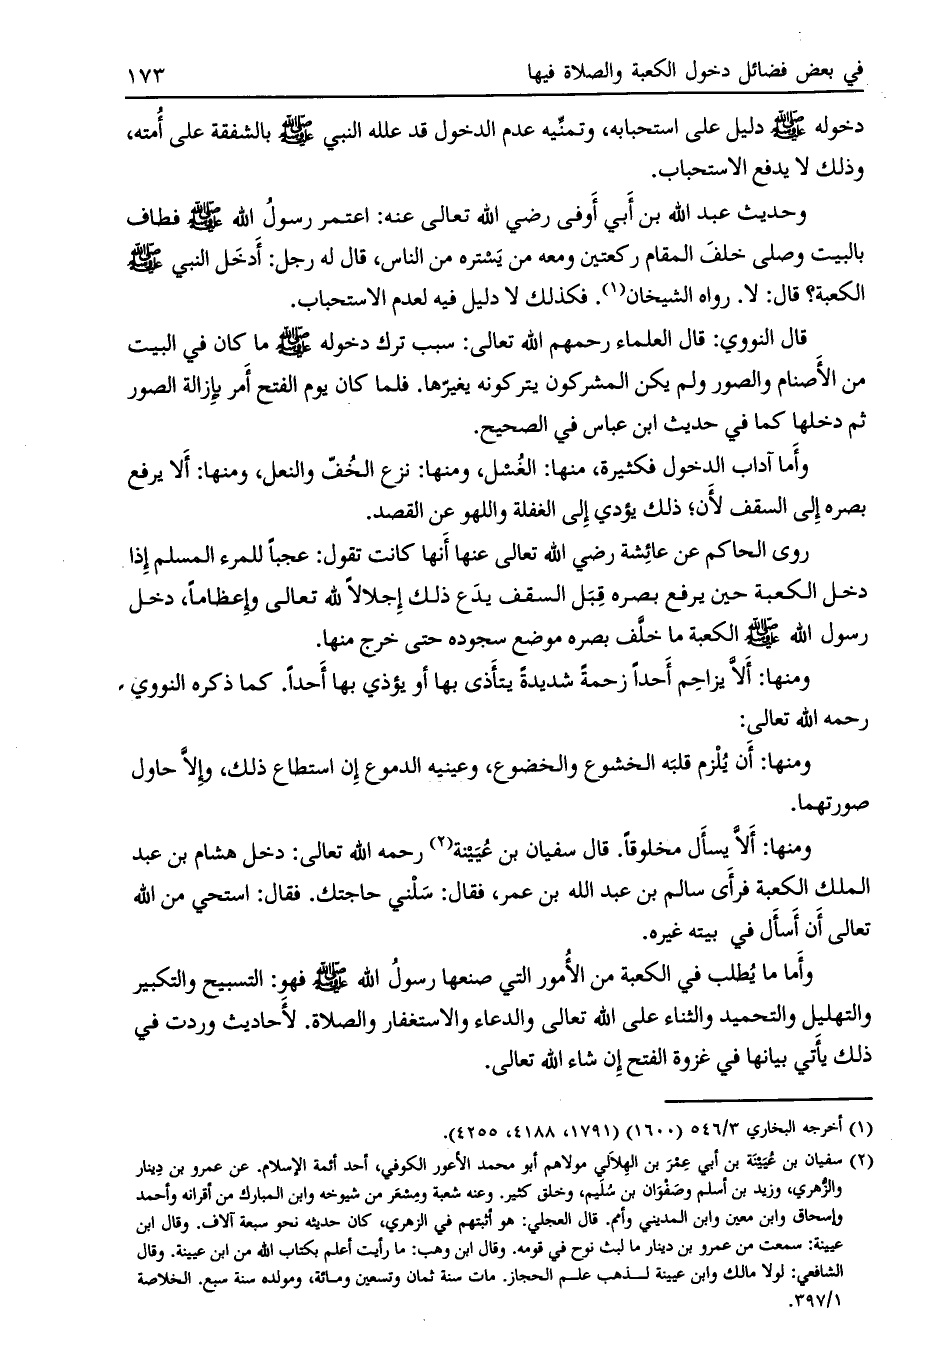 في بعض فضائل دخول الكعبة والصلاة فيها ١٧٣
دخوله ﷺ دليل على استحبابه، وتمنِّيه عدم الدخول قد علله النبي ﷺ بالشفقة على أُمته،
وذلك لا يدفع الاستحباب.
وحديث عبد الله بن أَبي أَوفى رضي الله تعالى عنه: اعتمر رسولُ الله ﷺ فطاف
بالبيت وصلى خلفَ المقام ركعتين ومعه من يَشتره من الناس، قال له رجل: أَدخَل النبي ﷺ
الكعبة؟ قال: لا. رواه الشيخان(١). فكذلك لا دليل فيه لعدم الاستحباب.
قال النووي: قال العلماء رحمهم الله تعالى: سبب ترك دخوله ﷺ ما كان في البيت
من الأَصنام والصور ولم يكن المشركون يتركونه يغيرّها. فلما كان يوم الفتح أَمر بإِزالة الصور
ثم دخلها كما في حديث ابن عباس في الصحيح.
وأَما آداب الدخول فكثيرة، منها: الغُسْل، ومنها: نزع الخُفّ والنعل، ومنها: أَلا يرفع
بصره إِلى السقف لأَن؛ ذلك يؤدي إِلى الغفلة واللهو عن القصد.
روى الحاكم عن عائِشة رضي الله تعالى عنها أَنها كانت تقول: عجباً للمرء المسلم إِذا
دخل الكعبة حين يرفع بصره قِبَل السقف يدَع ذلك إِجلالاً لله تعالى وإِعظاماً، دخل
رسول الله ﷺ الكعبة ما خلَّف بصره موضع سجوده حتى خرج منها.
ومنها: أَلاَّ يزاحِم أَحداً زحمةً شديدةً يتأَذى بها أو يؤذي بها أَحداً. كما ذكره النووي
رحمه الله تعالى:
ومنها: أَن يُلْزم قلبَه الخشوع والخضوع، وعينيه الدموع إِن استطاع ذلك، وإِلاَّ حاول
صورتهما.
ومنها: أَلاَّ يسأَل مخلوقاً. قال سفيان بن عُيَيْنة(٢) رحمه الله تعالى: دخل هشام بن عبد
الملك الكعبة فرأَى سالم بن عبد الله بن عمر، فقال: سَلْني حاجتك. فقال: استحي من الله
تعالى أَن أَسأَل في بيته غيره.
وأَما ما يُطلب في الكعبة من الأُمور التي صنعها رسولُ الله ﷺ فهو: التسبيح والتكبير
والتهليل والتحميد والثناء على الله تعالى والدعاء والاستغفار والصلاة. لأَحاديث وردت في
ذلك يأَتي بيانها في غزوة الفتح إِن شاء الله تعالى.
(١) أخرجه البخاري ٥٤٦/٣ (١٦٠٠) (١٧٩١، ٤١٨٨، ٤٢٥٥).
(٢) سفيان بن عُيَيْنَة بن أبي عِمْرَ بن الهِلاَلَي مولاهم أبو محمد الأعور الكوفي، أحد أئمة الإسلام. عن عمرو بن دِينار
والزُّهري، وزيد بن أسلم وصَفْوَان بن سُليم، وخلق كثير. وعنه شعبة ومِسْعَر من شيوخه وابن المبارك من أقرانه وأحمد
وإسحاق وابن معين وابن المديني وأمم. قال العجلي: هو أثبتهم في الزهري، كان حديثه نحو سبعة آلاف. وقال ابن
عيينة: سمعت من عمرو بن دينار ما لبث نوح في قومه. وقال ابن وهب: ما رأيت أعلم بكتاب الله من ابن عيينة. وقال
الشافعي: لولا مالك وابن عيينة لـذهب علـم الحجاز. مات سنة ثمان وتسعين ومـائة، ومولده سنة سبع. الخلاصة
٣٩٧/١.